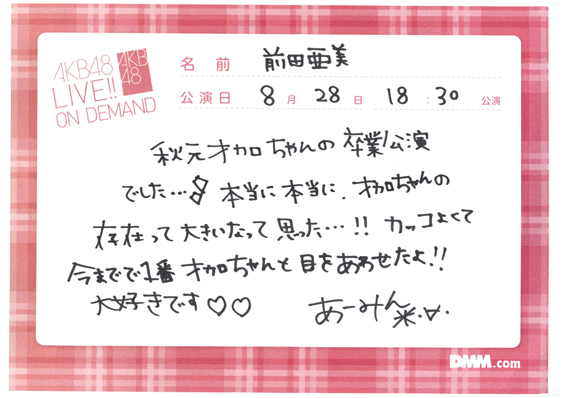 AKB48
LIVE!!
ON DEMAND
AKB
48
名前 前田亜美
公演日 8月 28日 18:30 公演
秋元才加ちゃんの卒業公演
でした…！本当に本当に、才加ちゃんの
存在って大きいなって思った…!! カッコよくて
今までで1番才加ちゃんと目をあわせたよ!!
大好きです♡♡ あーみん
DMM.com